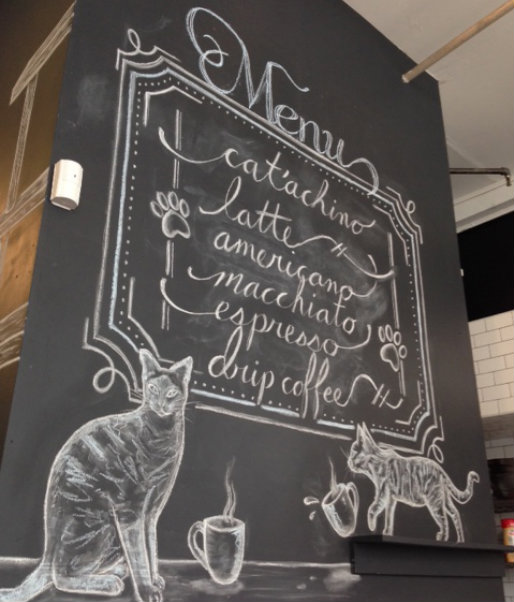 Menu
cat'achino
latte
americano
macchiato
espresso
drip coffee